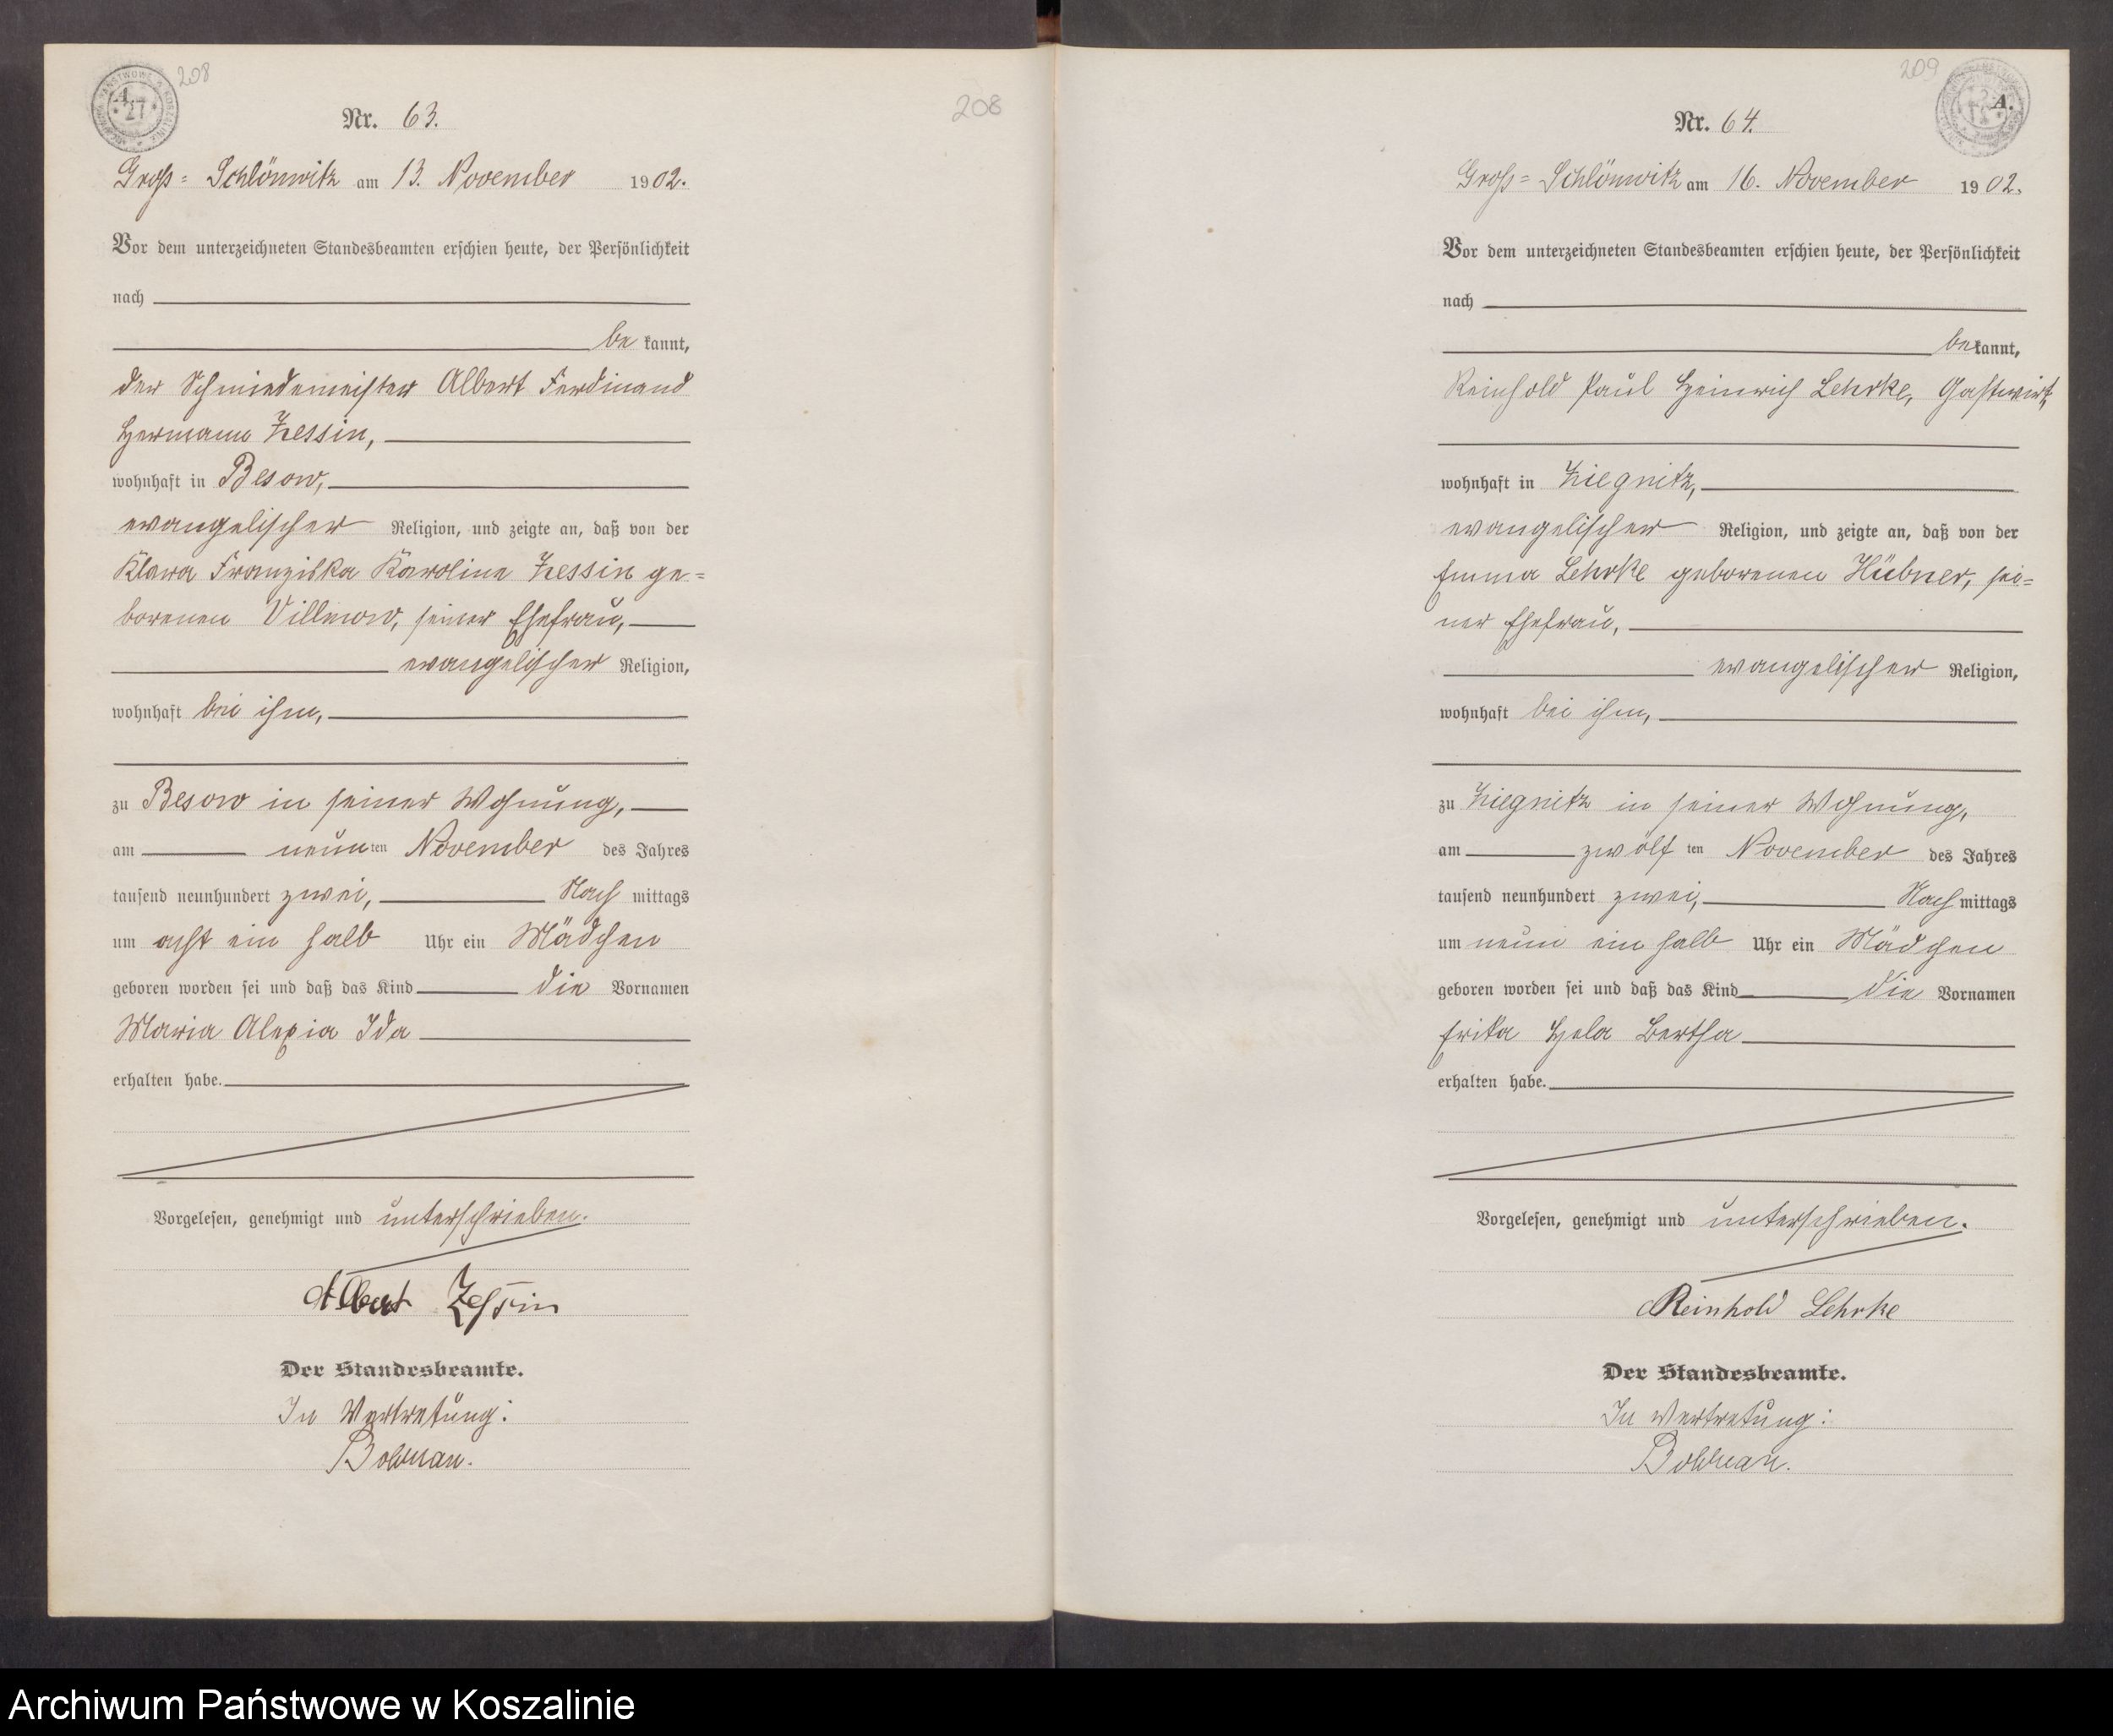 208
A.
27
Nr. 63.
Groß= Schlönwitz am 13. November 1902.
Vor dem unterzeichneten Standesbeamten erschien heute, der Persönlichkeit
nach
be kannt,
der Schmiedemeister Albert Ferdinand
Hermann Zessin,
wohnhaft in Besow,
evangelischer Religion, und zeigte an, daß von der
Klara Franziska Karoline Zessin ge=
borenen Villmow, seiner Ehefrau,
evangelischer Religion,
wohnhaft bei ihm,
zu Besow in seiner Wohnung,
am neunten November des Jahres
tausend neunhundert zwei, Nach mittags
um acht ein halb Uhr ein Mädchen
geboren worden sei und daß das Kind die Vornamen
Maria Alexia Ida
erhalten habe.
Vorgelesen, genehmigt und unterschrieben.
Albert Zessin
Der Standesbeamte.
In Vertretung:
208
209
A.
Nr. 64.
Groß= Schlönwitz am 16. November 1902.
Vor dem unterzeichneten Standesbeamten erschien heute, der Persönlichkeit
nach
bekannt,
Reinhold Paul Heinrich Lehrke, Gastwirt,
wohnhaft in Ziegnitz,
evangelischer Religion, und zeigte an, daß von der
Emma Lehrke geborenen Hübner, sei=
ner Ehefrau,
evangelischer Religion,
wohnhaft bei ihm,
zu Ziegnitz in seiner Wohnung,
am zwölf ten November des Jahres
tausend neunhundert zwei, Nach mittags
um neun ein halb Uhr ein Mädchen
geboren worden sei und daß das Kind die Vornamen
Erika Hela Bertha
erhalten habe.
Vorgelesen, genehmigt und unterschrieben.
Reinhold Lehrke
Der Standesbeamte.
In Vertretung:
Archiwum Państwowe w Koszalinie